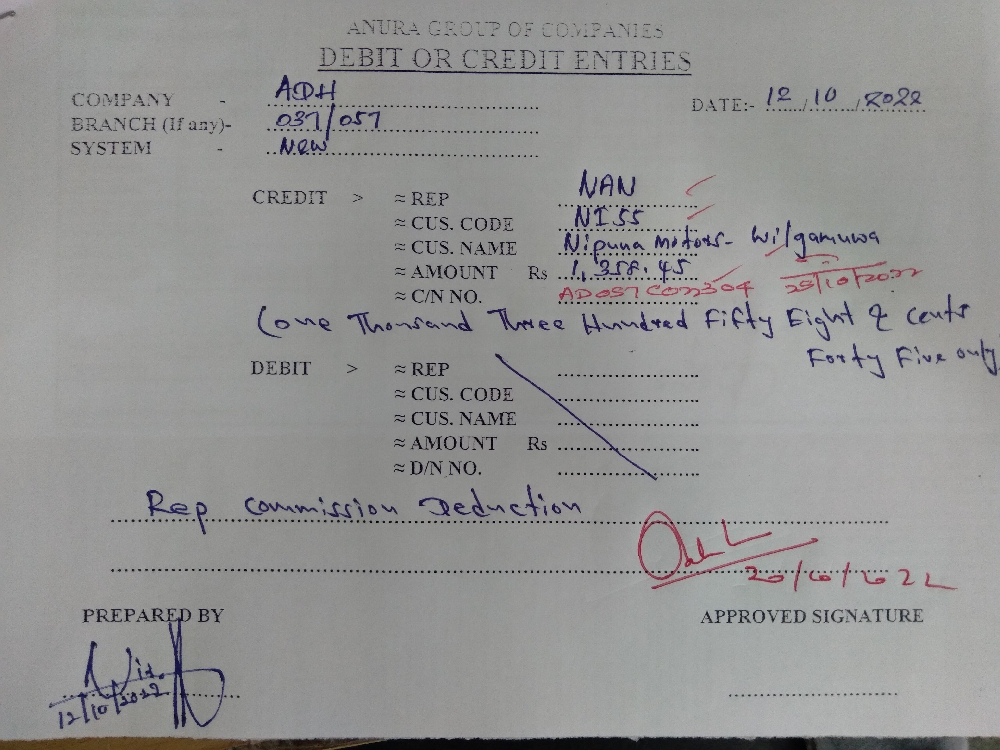 ANURA GROUP OF COMPANIES
DEBIT OR CREDIT ENTRIES
COMPANY - ADH
DATE:- 12/10/2022
BRANCH (If any)- 037/057
SYSTEM - New
CREDIT > ≈ REP NAN
≈ CUS. CODE NI55
≈ CUS. NAME Nipuna Motors - Wilgamuwa
≈ AMOUNT Rs 1,358.45
≈ C/N NO. AD057C022304 25/10/2022
(One Thousand Three Hundred Fifty Eight & cents
Forty Five only
DEBIT > ≈ REP
≈ CUS. CODE
≈ CUS. NAME
≈ AMOUNT Rs
≈ D/N NO.
Rep Commission Deduction
20/10/2022
PREPARED BY
APPROVED SIGNATURE
12/10/2022